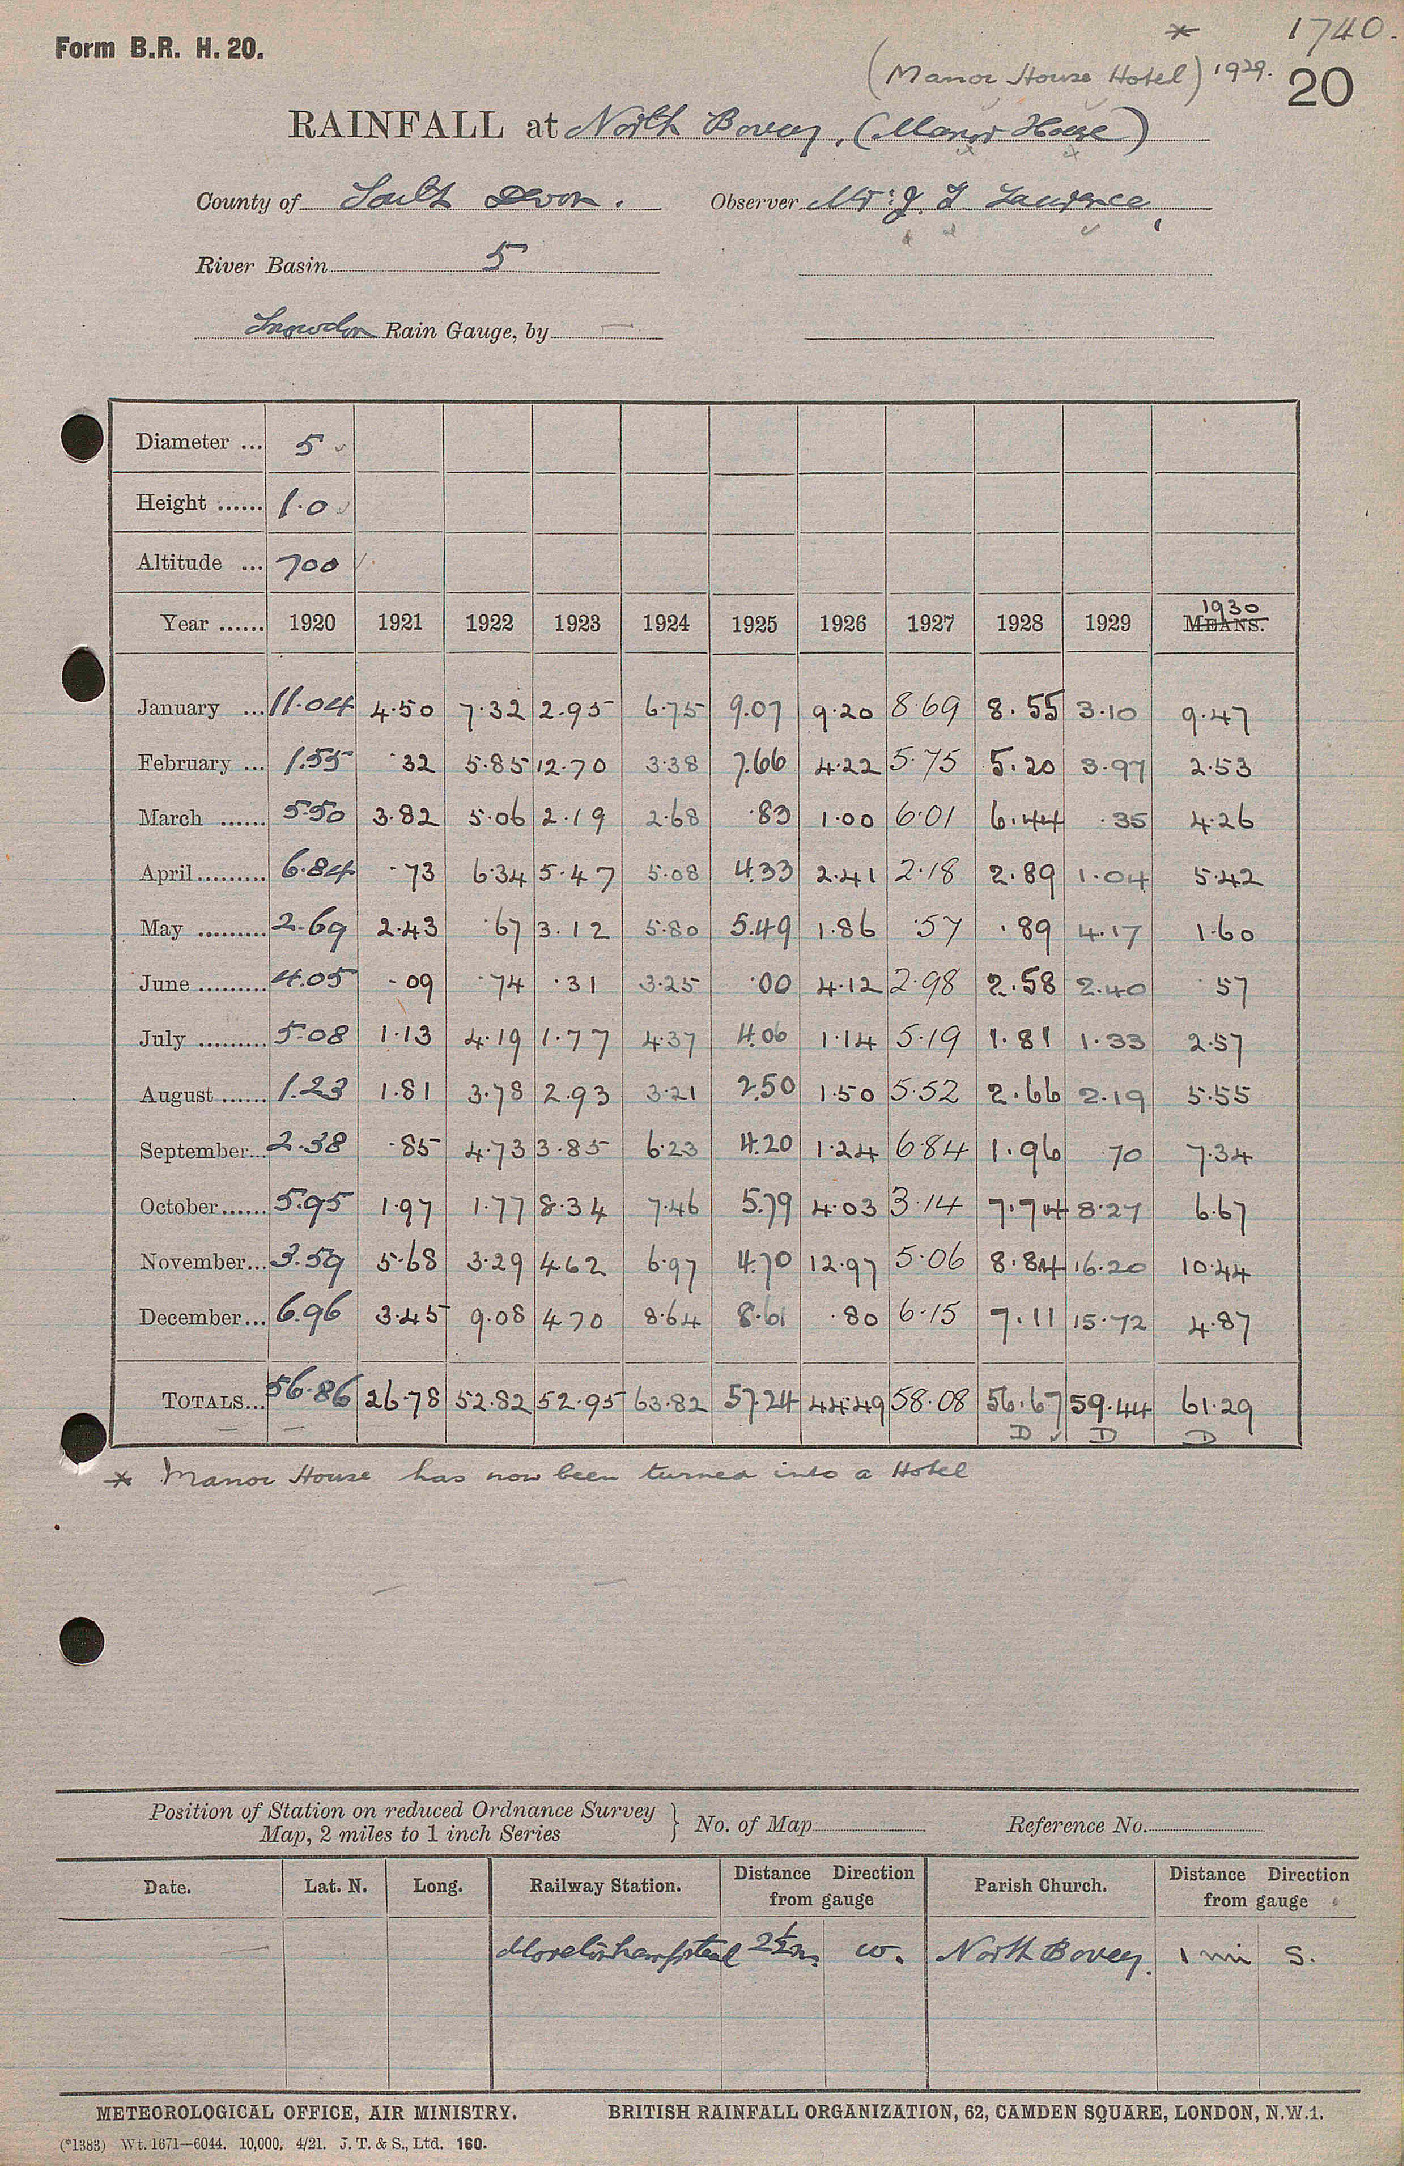 * 1740.
Form B.R. H. 20.
(Manor House Hotel) 1929. 20
RAINFALL at North Bovey, (Manor House)
County of South Devon. Observer Mr: J. T Lawrence,
River Basin 5
Snowdon Rain Gauge, by —
Diameter ... 5
Height ...... 1.0
Altitude ... 700
Year ...... 1920 1921 1922 1923 1924 1925 1926 1927 1928 1929 1930 MEANS.
January ... 11.04 4.50 7.32 2.95 6.75 9.07 9.20 8.69 8.55 3.10 9.47
February ... 1.55 .32 5.85 12.70 3.38 7.66 4.22 5.75 5.20 3.97 2.53
March ...... 5.50 3.82 5.06 2.19 2.68 .83 1.00 6.01 6.44 .35 4.26
April ......... 6.84 .73 6.34 5.47 5.08 4.33 2.41 2.18 2.89 1.04 5.42
May ......... 2.69 2.43 .67 3.12 5.80 5.49 1.86 .57 .89 4.17 1.60
June ......... 4.05 .09 .74 .31 3.25 .00 4.12 2.98 2.58 2.40 .57
July ......... 5.08 1.13 4.19 1.77 4.37 4.06 1.14 5.19 1.81 1.33 2.57
August ...... 1.23 1.81 3.78 2.93 3.21 2.50 1.50 5.52 2.66 2.19 5.55
September... 2.38 .85 4.73 3.85 6.23 4.20 1.24 6.84 1.96 70 7.34
October...... 5.95 1.97 1.77 8.34 7.46 5.79 4.03 3.14 7.74 8.27 6.67
November... 3.59 5.68 3.29 4.62 6.97 4.70 12.97 5.06 8.84 16.20 10.44
December... 6.96 3.45 9.08 4.70 8.64 8.61 .80 6.15 7.11 15.72 4.87
TOTALS... 56.86 26.78 52.82 52.95 63.82 57.24 44.49 58.08 56.67 59.44 61.29
D D D
* Manor House has now been turned into a Hotel
Position of Station on reduced Ordnance Survey
Map, 2 miles to 1 inch Series } No. of Map Reference No.
Date. Lat. N. Long. Railway Station. Distance Direction from gauge Parish Church. Distance Direction from gauge
Moretonhampstead 2½m. W. North Bovey. 1 mi S.
METEOROLOGICAL OFFICE, AIR MINISTRY. BRITISH RAINFALL ORGANIZATION, 62, CAMDEN SQUARE, LONDON, N.W.1.
(*1383) Wt. 1671—6044. 10,000. 4/21. J. T. & S., Ltd. 160.